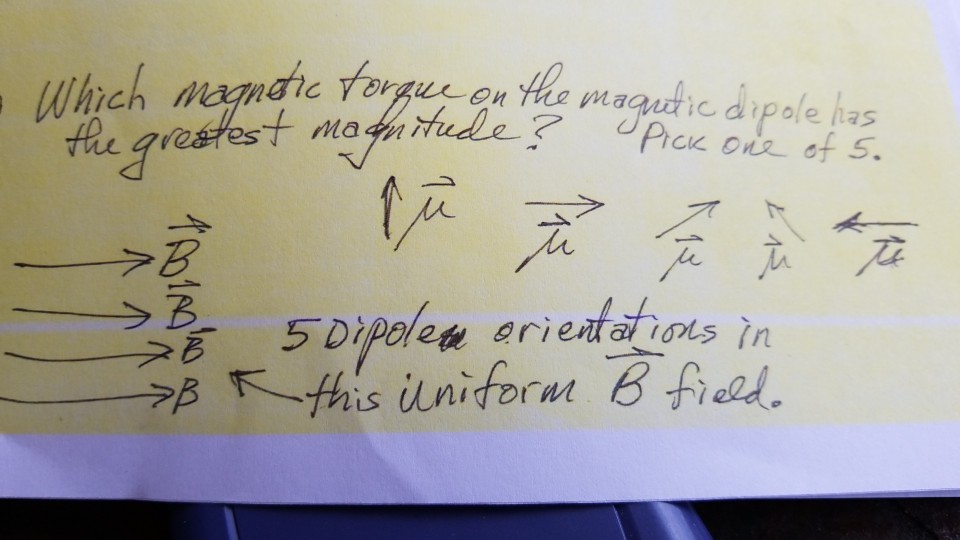 Which magnetic torque on the magnetic dipole has
the greatest magnitude? Pick one of 5.
μ⃗ μ⃗ μ⃗ μ⃗ μ⃗
B⃗
B⃗
B⃗
B
5 Dipole orientations in
this uniform B⃗ field.